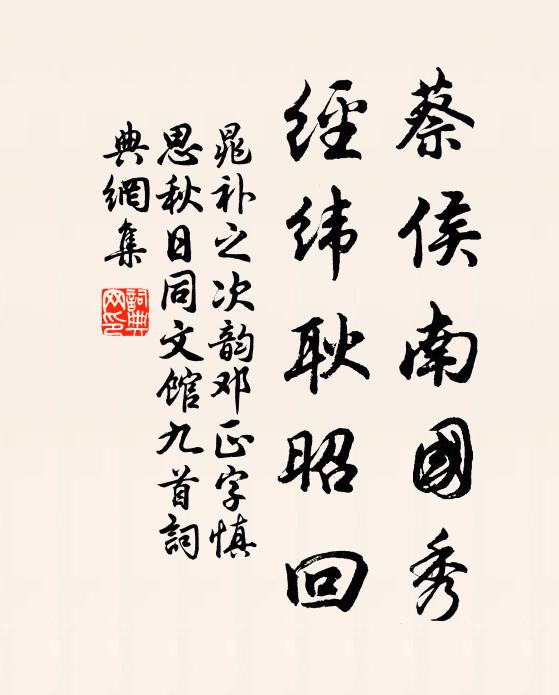 蔡侯南國秀
經緯耿昭回
晁补之次韵邓正字慎
思秋日同文馆九首詞
典網集
詞典網印